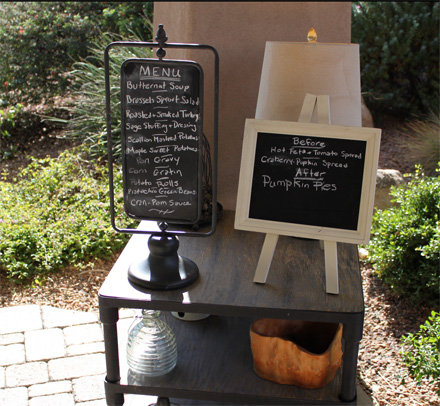 MENU
Butternut Soup
Brussels Sprout Salad
Roasted + Smoked Turkey
Sage Stuffing + Dressing
Scallion Mashed Potatoes
Maple Sweet Potatoes
Pan Gravy
Corn Gratin
Potato Rolls
Pistachio Green Beans
Cran-Pom Sauce
Before
Hot Feta + Tomato Spread
Cranberry-Pupkin Spread
After
Pumpkin Pies